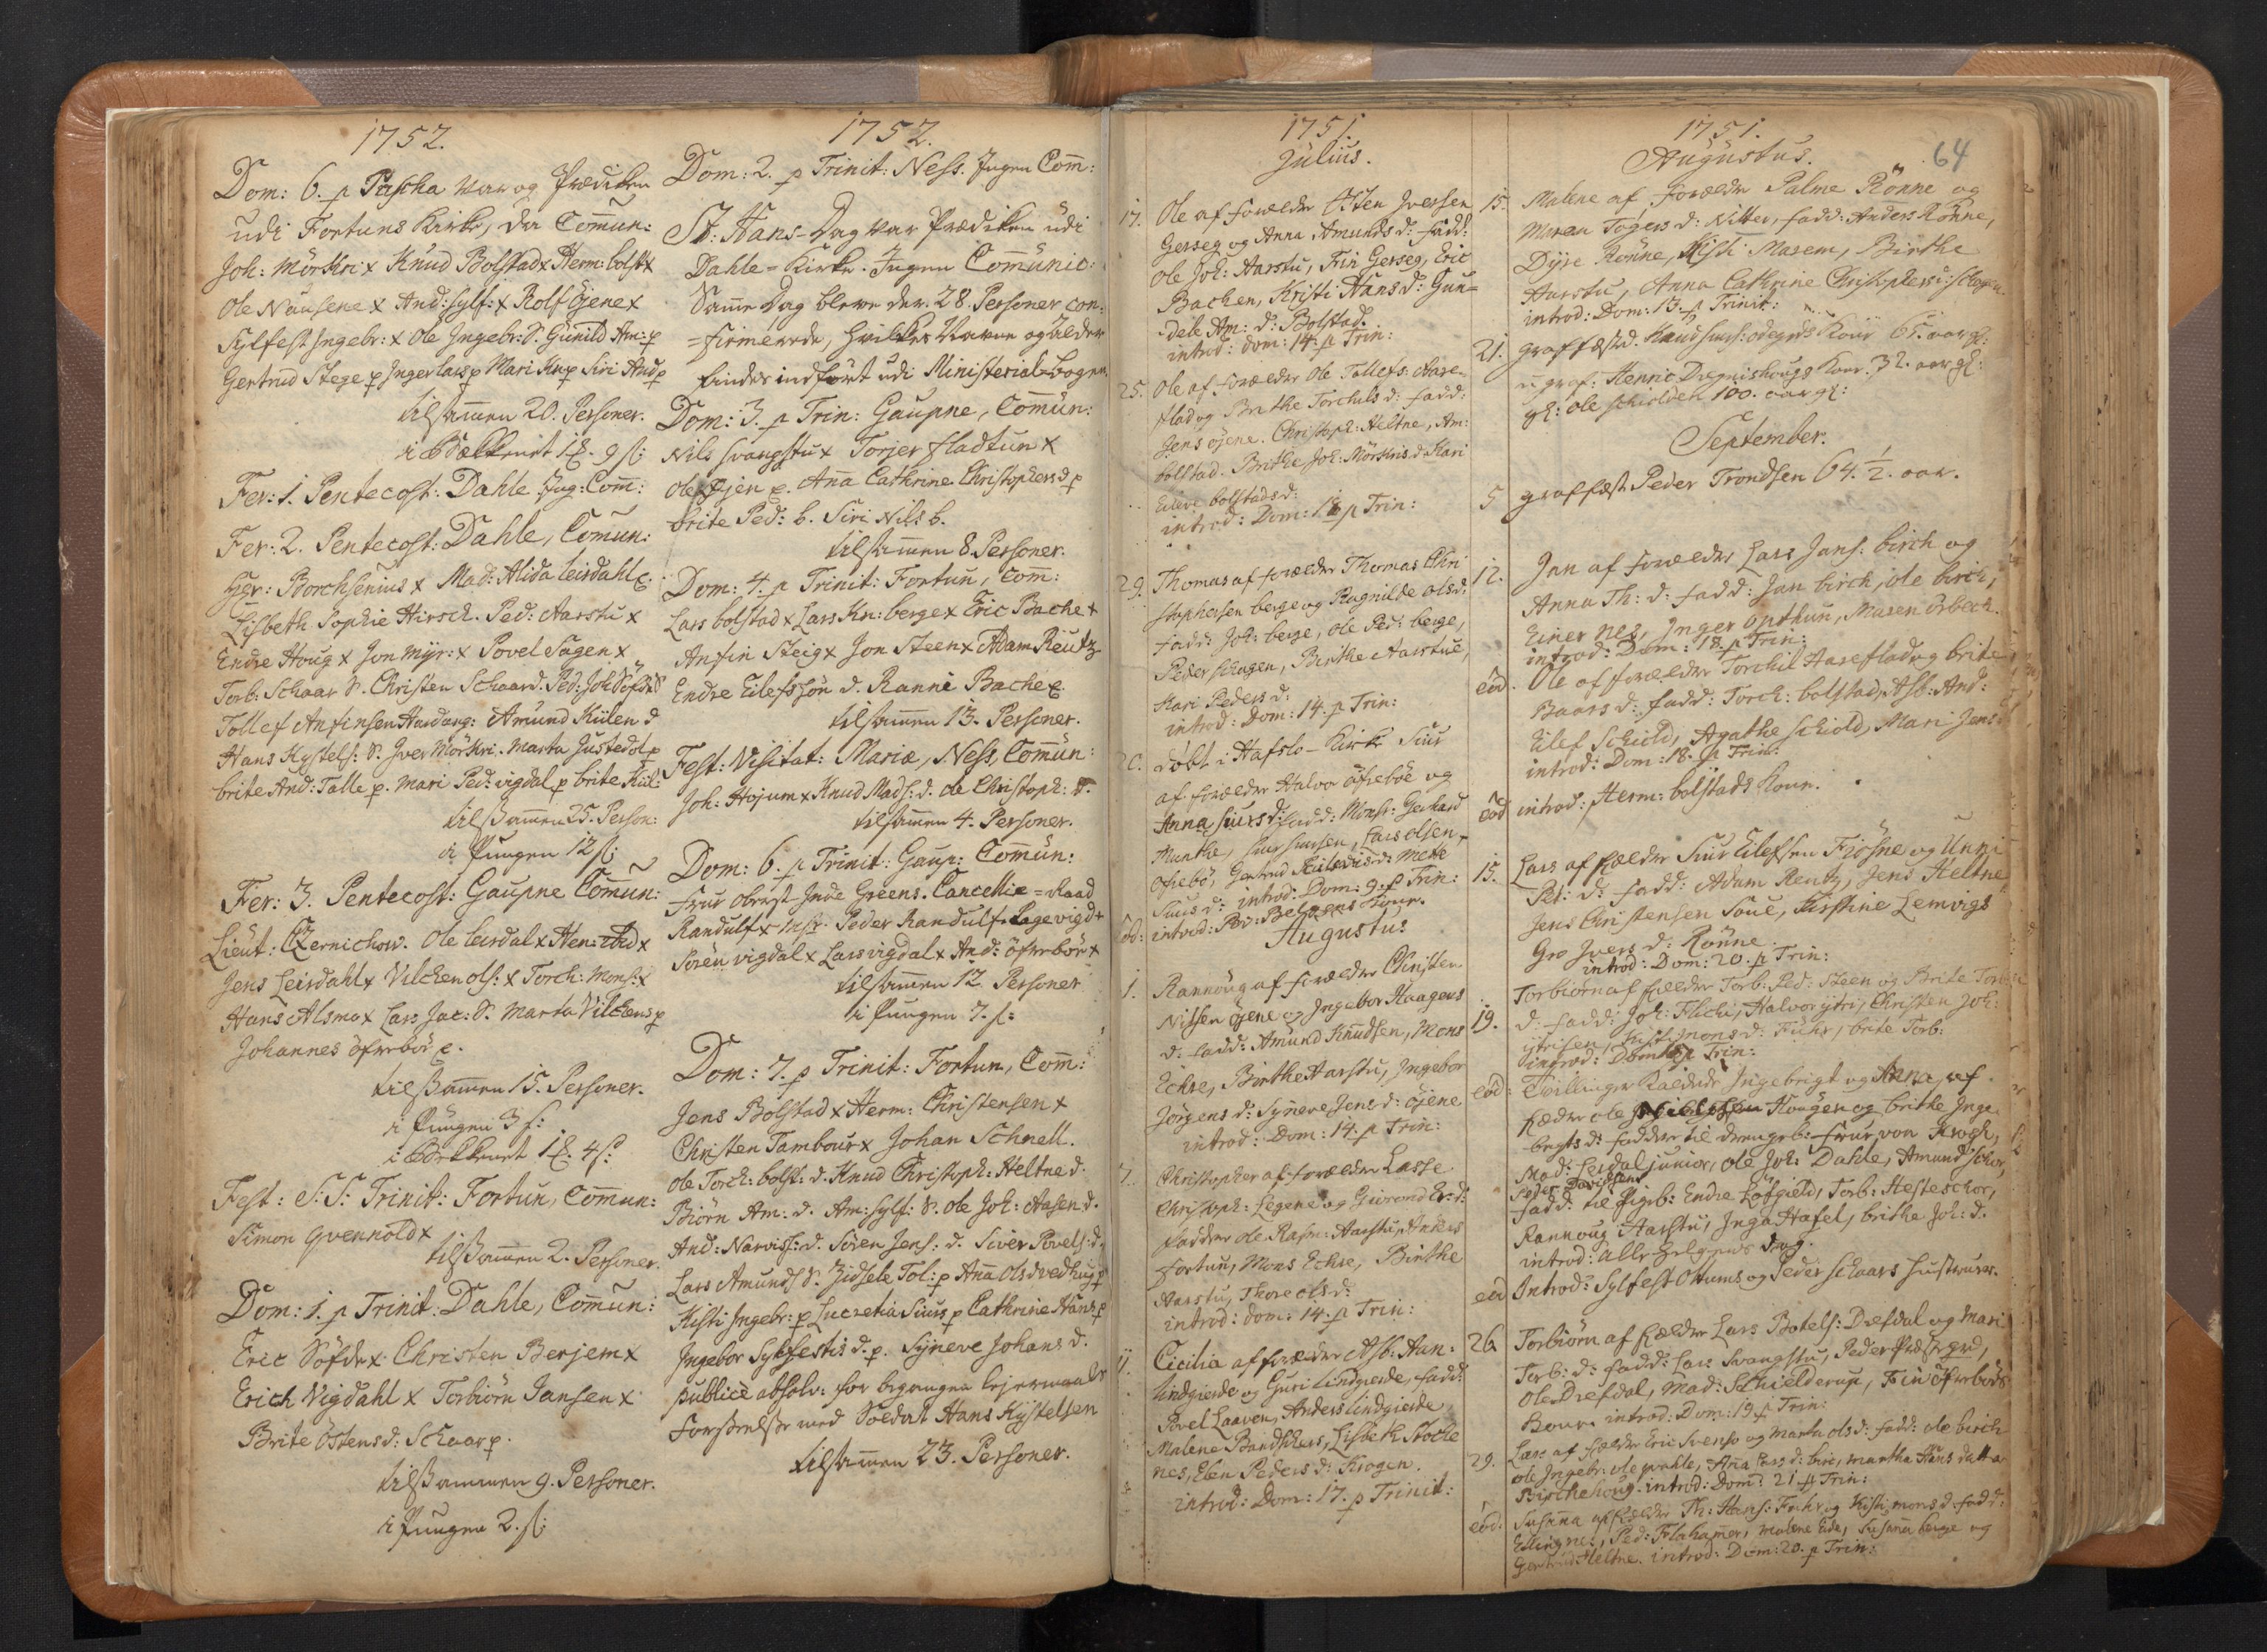 1752.
Dom: 6. p Pascha var og Prædiken
udi Fortuns Kirke, da Com̅un:
Joh: Mörkri x Knud Bolstad x Herm: bolst x
Ole Nausene x And: Sylf: x Rolf Öjene x
Sylfest Ingebr: x Ole Ingebr: S. Gunild Am: p
Gertrud Stege p Inger Lars p Mari Kn p Siri And p
tilsam̅en 20. Personer.
Fer: 1. Pentecost: Dahle Ing: Com̅:
Fer: 2. Pentecost: Dahle, Comun:
Hr: Borchsenius x Mad: Alida Leirdahl
Lisbeth Sophie Hirsch. Ped: Aarstu x
Endre Houg x Jon Myr: x Povel Sagen x
Torb: Schaar S. Christen Schaar d. Ped: Joh
Tollef Anfinsen Amund Kiilen d
Hans Kystels: S. Iver Mörkri. Marta Justedol p
brite And: Talle p. Mari Ped: vigdal p brite
tilsam̅en 25. Person:
i Pungen 12 s:
Fer: 3. Pentecost: Gaupne Com̅un:
Lieut: Czernichow. Ole Leirdal x
Jens Leirdahl x Vilchen Ols: x Torch: Mons: x
Hans Alsmo x Lars Jac: S. Marta Vilchens p
Johannes öfrebör
tilsam̅en 15. Personer.
i Pungen 3 s:
i Bekkenet 1 4 s:
Fest: S: S: Trinit: Fortun, Com̅un:
Simon Qvennold x
tilsam̅en 2. Personer.
Dom: 1. p Trinit: Dahle, Com̅un:
Eric Söfde x Christen Berjem x
Erich Vigdahl x Torbiörn Jansen x
Brite Östens d: Schaar p.
tilsam̅en 9. Personer.
i Pungen 2. s:
1752.
Dom: 2. p Trinit: Ness. Ingen Com̅:
St: Hans-Dag var Prædiken udi
Dahle-Kirke. Ingen Com̅unic:
Sam̅e Dag bleve der. 28. Personer con=
=firmerede, hvilkes Navne og Alder
findes indfört udi Ministerial-bogen.
Dom: 3. p Trin: Gaupne, Com̅un:
Nils Svangstu x Torjer Fladtun x
Ole Öjen Anna Cathrine Christophers d p
brite Ped: b. Siri Nils b.
tilsam̅en 8. Personer.
Dom: 4. p Trinit: Fortun, Com̅:
Lars bolstad x Lars Kn: berge x Eric Bache x
Anfin Steig x Jon Steen x Adam Reutz
Endre Eilefssön d. Ranni Bache
tilsam̅en 13. Personer.
Fest: Visitat: Mariæ, Ness, Com̅un:
Joh: Hojum x Knud Mads: d. Ole Christoph: S.
tilsam̅en 4. Personer.
Dom: 6. p Trinit: Gaup: Com̅un:
Frue Oberst Greens. Cancellie-Raad
Randulf x Msr: Peder Randulf Lage vigd x
Sören vigdal x Lars vigdal x And: öfrebör x
tilsam̅en 12 Personer
i Pungen 7. s:
Dom: 7. p Trinit: Fortun, Com̅:
Jens Bolstad x Herm: Christensen x
Christen Tambour x Johan Schnell.
Ole Torch: bolst: d. Knud Christoph: Heltne d.
Biörn Am: d. Am: Sylf: S. Ole Joh: Aasen d.
And: Narviss: d. Sören Jens: d. Siver Povels: d.
Lars Amunds S. Zidsele Tol: p Anna Ols d
Kisti Ingebr: p Lucretia Siurs p Cathrine Hans p
Ingebor Sylfestis d. p. Syneve Johans d.
publicè absolv: for begangen lejermaals
Forseelse med Soldat Hans Kystelsen
tilsam̅en 23. Personer.
1751.
Julius.
17. Ole af forældre Östen Iversen
Gerseg og Anna Amunds d: fadd:
Ole Joh: Aarstu, Trin Gerseg, Eric
Bachen, Kristi Hans d: Gun=
dele Am: d: Bolstad.
introd: Dom: 14. p Trin:
25. Ole af forældre Ole Tollefs: Aase=
flad og Birthe Torchils d: fadd:
Jens öjene. Christoph: Heltne, Am:
bolstad. Brithe Joh: Mörkris d: Kari
Eileve bolstads d:
introd: Dom: 18 p Trin:
29. Thomas af forældre Thomas Chri
stophersen berge og Ragnilde Ols d:
fadd: Joh: berge, Ole Ped: berge,
Peder Schagen, Birthe Aarstue,
Kari Peders d:
introd: Dom: 14. p Trin:
döbt i Hafslo-Kirke Siur
af forældre Halvor öfrebö og
Anna Siurs d: fadd: Monsr: Gerhard
Munthe, Siur Siursen, Lars Olsen
Ofrebö, Gertrud Mete
Siurs d: introd: Dom: 9. p Trin:
eod: introd: Pov: Belgens Kone.
Augustus
1. Rannoug af forældre Christen
Nilsen öjene og Ingebor Haagens
d: fadd: Amund Knudsen, Mons
Echre, Birthe Aarstu, Ingebor
Jörgens d: Syneve Jens d: öjene
introd: Dom: 14. p Trin:
7. Christopher af forældre Lasse
Christoph: Legene og Guroond Er: d:
faddere Ole Rasm: Aarstu, Anders
Fortun, Mons Echre, Birthe
Aarstu, Thore Ols d:
introd: dom: 14. p Trin:
11. Cicilia af forældre Asb: Han:
Lindgierde og Guri Lindgierde, fadd:
Povel Laaven, Anders Lindgierde
Malene Lisbeth Stoche
nes, Elen Peders d: Krogen.
introd: Dom: 17. p Trinit:
1751.
64
Augustus.
15. Malene af forældre Palme Rönne og
Maren Tögers d: Nitter, fadd: Anders Rönne,
Dyre Rönne, Kisti Masem, Birthe
Aarstu, Anna Cathrine Christophers d:
introd: Dom: 13. p Trinit:
21. graffæst. Knud Kone 65. aar gl:
Henric Kone. 32. aar gl:
Ole Schiolden 100. aar gl:
September.
5 graffæst Peder Trondsen 64. 1/2. aar.
12. Jan af forældre Lars Jans: birch og
Anna Th: d: fadd: Jan birch, Ole birch,
Einer Nes, Inger Opthun, Maren Orbech.
introd: Dom: 18. p Trin:
eod. Ole af forældre Torchil Aaseflad og brite
Baars d: fadd: Torch: bolstad, Asb: And:
Eilef Schiold, Agathe Schiold, Mari Jens d
introd: Dom: 18. p Trin:
eod introd: Herm: bolstads Kone.
15. Lars af fældre Siur Eilefsen Fiösne og Unni
Pet: d: fadd: Adam Reutz, Jens Heltne,
Jens Christensen Soue, Kirstine Lemvigs
Gro Ivers d: Rönne.
introd: Dom: 20. p Trin:
19. Torbiörn af fælder Torb: Ped: Steen og Brite Torb
d: fadd: Joh: Flichi, Halvor ytri, Christen Joh:
ytrisen, Kisti Mons d: Fuhr, brite Torb:
introd: Dom: p Trin:
eod: Tvillinger kaldede Ingebrigt og Anna, af
fædre Ole Nielssen Hougen og brithe Inge
brigts d: faddere til drengeb: Frue von Krogh,
Mad: Leirdal junior, Ole Joh: Dahle, Amund Schor,
Peder Davidsen
fadd: til Pigeb: Endre Löfgield, Torb: Hesteschor,
Rannoug Aarstu, Inga Hafel, brithe Joh: d.
introd: alle helgens dag.
eod Introd: Sylfest Ottums og Peder Schaars hustruer.
26 Torbiörn af fældre Lars Botels: Drefdal og Mari
Terb: d: fadd: Lars Svangstu, Peder
Ole Drefdal, Mad: Schielderup, Trin öfrebös
Kone. introd: Dom: 19 p Trin:
29. Lars af fældre Eric Svensö og Marta Ols d: fadd: Ole birch
Ole Ingebr: Ole Anna Lars d: birc, Martha Hans datter
Birchehoug. introd: Dom: 21 p Trin:
eod. Susanna af fældre Th: Hans: Fuhr og Kisti Mons d: fadd:
Elling nes, Ped: Flahamer, Malene Eide, Susanna berge og
Gertrud Heltne. introd: Dom: 20. p Trin: